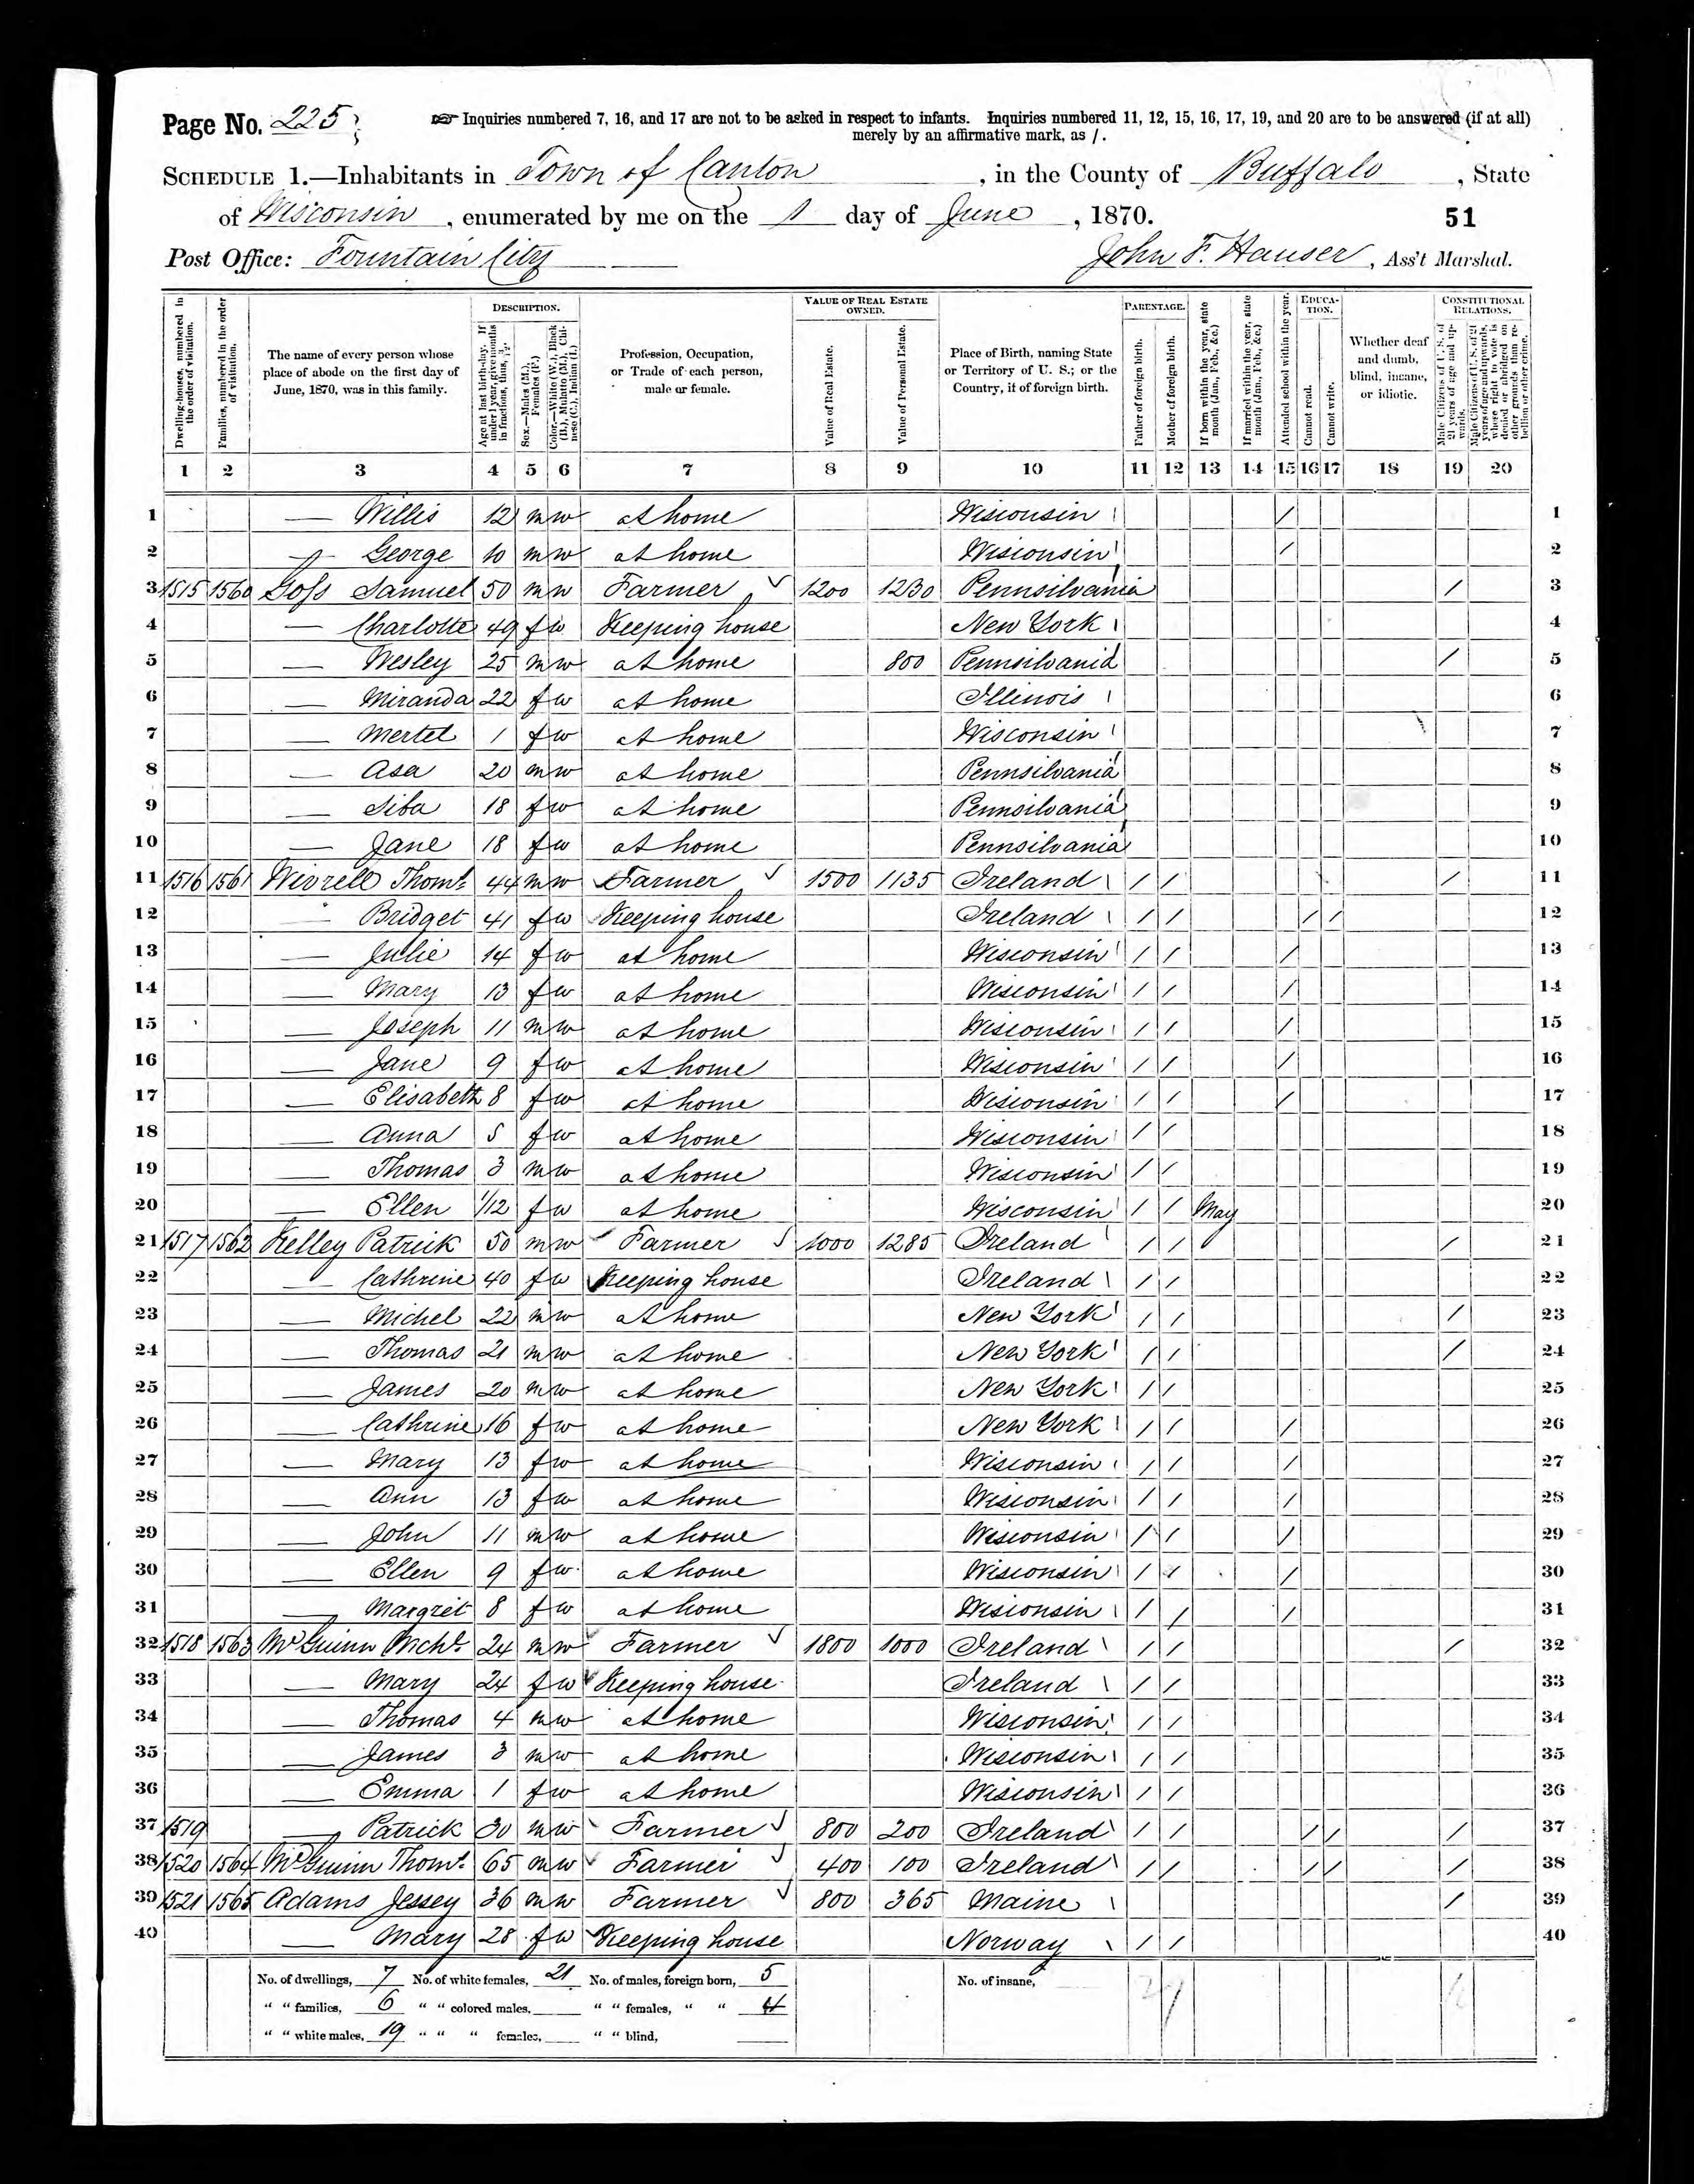 Page No. 225
☞ Inquiries numbered 7, 16, and 17 are not to be asked in respect to infants. Inquiries numbered 11, 12, 15, 16, 17, 19, and 20 are to be answered (if at all)
merely by an affirmative mark, as /.
SCHEDULE 1.—Inhabitants in Town of Canton, in the County of Buffalo, State
of Wisconsin, enumerated by me on the 1 day of June, 1870. 51
Post Office: Fountain City John F. Hauser, Ass't Marshal.
Dwelling-houses, numbered in the order of visitation.
Families, numbered in the order of visitation.
The name of every person whose place of abode on the first day of June, 1870, was in this family.
DESCRIPTION.
Age at last birth-day. If under 1 year, give months in fractions, thus, 3/12.
Sex.—Males (M.), Females (F.)
Color.—White (W.), Black (B.), Mulatto (M.), Chinese (C.), Indian (I.)
Profession, Occupation, or Trade of each person, male or female.
VALUE OF REAL ESTATE OWNED.
Value of Real Estate.
Value of Personal Estate.
Place of Birth, naming State or Territory of U. S.; or the Country, if of foreign birth.
PARENTAGE.
Father of foreign birth.
Mother of foreign birth.
If born within the year, state month (Jan., Feb., &c.)
If married within the year, state month (Jan., Feb., &c.)
Attended school within the year.
EDUCATION.
Cannot read.
Cannot write.
Whether deaf and dumb, blind, insane, or idiotic.
CONSTITUTIONAL RELATIONS.
Male Citizens of U. S. of 21 years of age and upwards.
Male Citizens of U. S. of 21 years of age and upwards, whose right to vote is denied or abridged on other grounds than rebellion or other crime.
1 2 3 4 5 6 7 8 9 10 11 12 13 14 15 16 17 18 19 20
1 — Willis 12 m w at home Wisconsin / 1
2 — George 10 m w at home Wisconsin / 2
3 1515 1560 Goss Samuel 50 m w Farmer 1200 1230 Pennsilvania / 3
4 — Charlotte 49 f w Keeping house New York 4
5 — Wesley 25 m w at home 800 Pennsilvania / 5
6 — Miranda 22 f w at home Illinois 6
7 — Mertel 1 f w at home Wisconsin 7
8 — Asa 20 m w at home Pennsilvania 8
9 — 18 f w at home Pennsilvania 9
10 — Jane 18 f w at home Pennsilvania 10
11 1516 1561 Thoms 44 m w Farmer 1500 1135 Ireland / / / 11
12 — Bridget 41 f w Keeping house Ireland / / / / 12
13 — Julie 14 f w at home Wisconsin / / / 13
14 — Mary 13 f w at home Wisconsin / / / 14
15 — Joseph 11 m w at home Wisconsin / / / 15
16 — Jane 9 f w at home Wisconsin / / / 16
17 — Elisabeth 8 f w at home Wisconsin / / / 17
18 — Anna 5 f w at home Wisconsin / / 18
19 — Thomas 3 m w at home Wisconsin / / 19
20 — Ellen 1/12 f w at home Wisconsin / / May 20
21 1517 1562 Kelley Patrick 50 m w Farmer 1000 1285 Ireland / / / 21
22 — Cathrine 40 f w Keeping house Ireland / / 22
23 — Michel 22 m w at home New York / / / 23
24 — Thomas 21 m w at home New York / / / 24
25 — James 20 m w at home New York / / 25
26 — Cathrine 16 f w at home New York / / / 26
27 — Mary 13 f w at home Wisconsin / / / 27
28 — Ann 13 f w at home Wisconsin / / / 28
29 — John 11 m w at home Wisconsin / / / 29
30 — Ellen 9 f w at home Wisconsin / / / 30
31 — Margret 8 f w at home Wisconsin / / / 31
32 1518 1563 McGuinn Mchl 24 m w Farmer 1800 1000 Ireland / / / 32
33 — Mary 24 f w Keeping house Ireland / / 33
34 — Thomas 4 m w at home Wisconsin / / 34
35 — James 3 m w at home Wisconsin / / 35
36 — Emma 1 f w at home Wisconsin / / 36
37 1519 — Patrick 30 m w Farmer 800 200 Ireland / / / / / 37
38 1520 1564 McGuinn Thoms 65 m w Farmer 400 100 Ireland / / / / / 38
39 1521 1565 Adams Jessey 36 m w Farmer 800 365 Maine / 39
40 — Mary 28 f w Keeping house Norway / / 40
No. of dwellings, 7 No. of white females, 21 No. of males, foreign born, 5 No. of insane,
" " families, 6 " " colored males, " " females, " " 4
" " white males, 19 " " " females, " " blind,